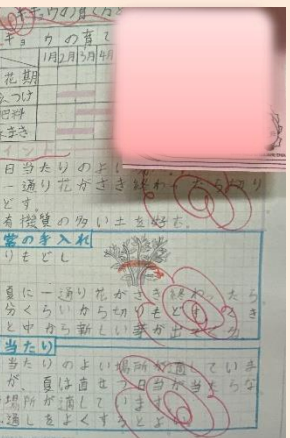 キキョウの育て方
キョウの育て
1月2月3月4月
花期
えつけ
肥料
ポイント
日当たりのよい
一通り花がさき終わったら切り
どす。
有機質の多い土を好む。
常の手入れ
りもどし
夏に一通り花がさき終わったら
分くらいから切りもどすとき
と中から新しい芽が出て
当たり
当たりのよい場所が適していま
が、夏は直せつ日当が当たらな
場所が適しています。
通しをよくするとよい